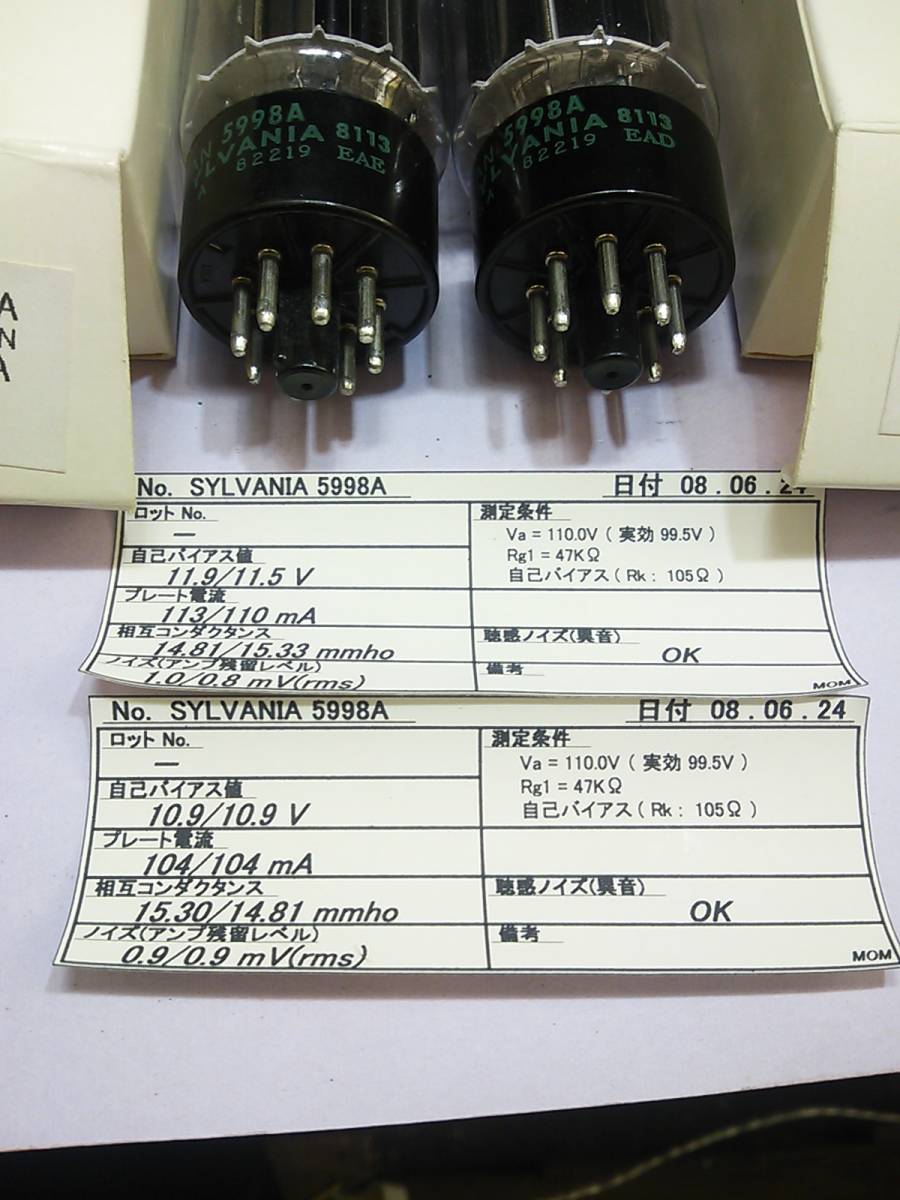 5998A
8113
SYLVANIA
82219 EAE
5998A
8113
SYLVANIA
82219 EAD
A
N
A
No. SYLVANIA 5998A
日付 08.06.24
ロット No.
―
自己バイアス値
11.9/11.5 V
プレート電流
113/110 mA
相互コンダクタンス
14.81/15.33 mmho
ノイズ(アンプ残留レベル)
1.0/0.8 mV(rms)
測定条件
Va = 110.0V ( 実効 99.5V )
Rg1 = 47KΩ
自己バイアス ( Rk : 105Ω )
聴感ノイズ(異音)
OK
備考
MOM
No. SYLVANIA 5998A
日付 08.06.24
ロット No.
―
自己バイアス値
10.9/10.9 V
プレート電流
104/104 mA
相互コンダクタンス
15.30/14.81 mmho
ノイズ(アンプ残留レベル)
0.9/0.9 mV(rms)
測定条件
Va = 110.0V ( 実効 99.5V )
Rg1 = 47KΩ
自己バイアス ( Rk : 105Ω )
聴感ノイズ(異音)
OK
備考
MOM